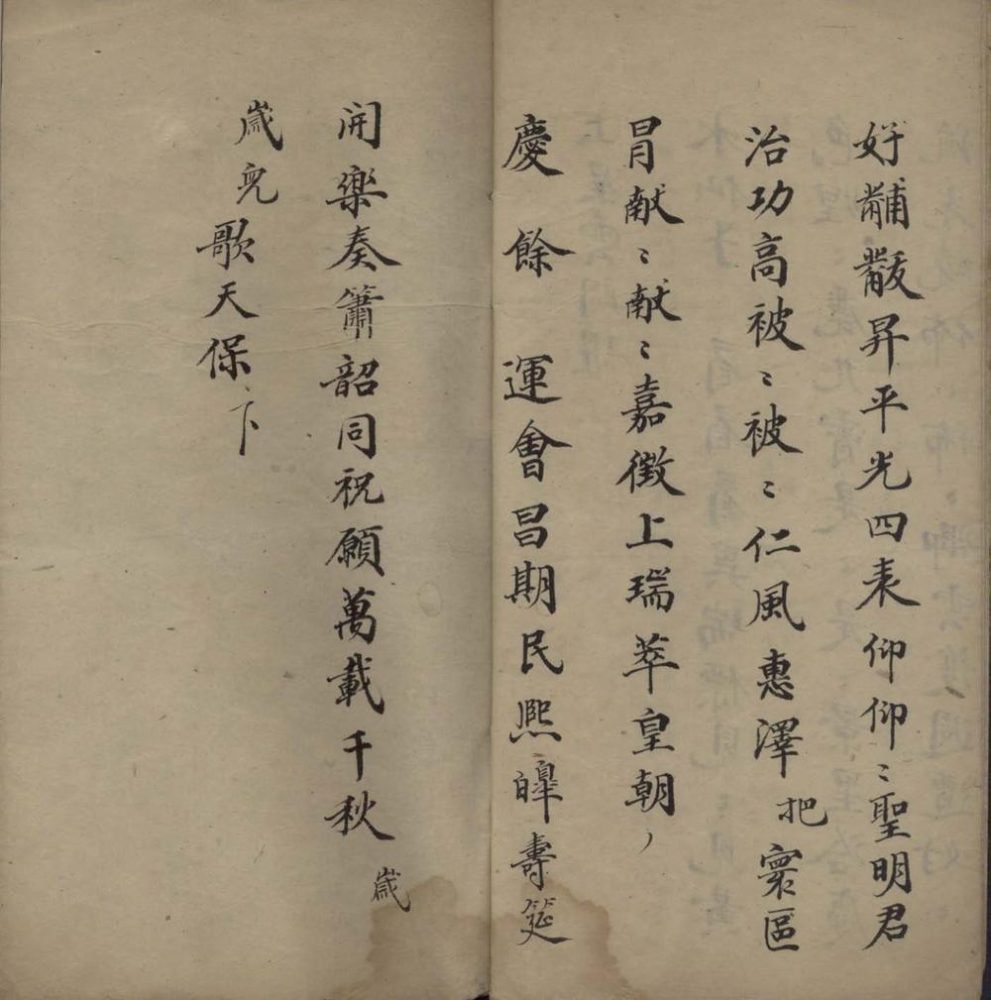 好黼黻昇平光四表仰仰〻聖明君
治功高被〻被〻仁風惠澤把寰區
冒献〻献〻嘉徵上瑞萃皇朝
慶餘 運會昌期民熙皞壽筵
開樂奏簫韶同祝願萬載千秋歲
歲兒歌天保下